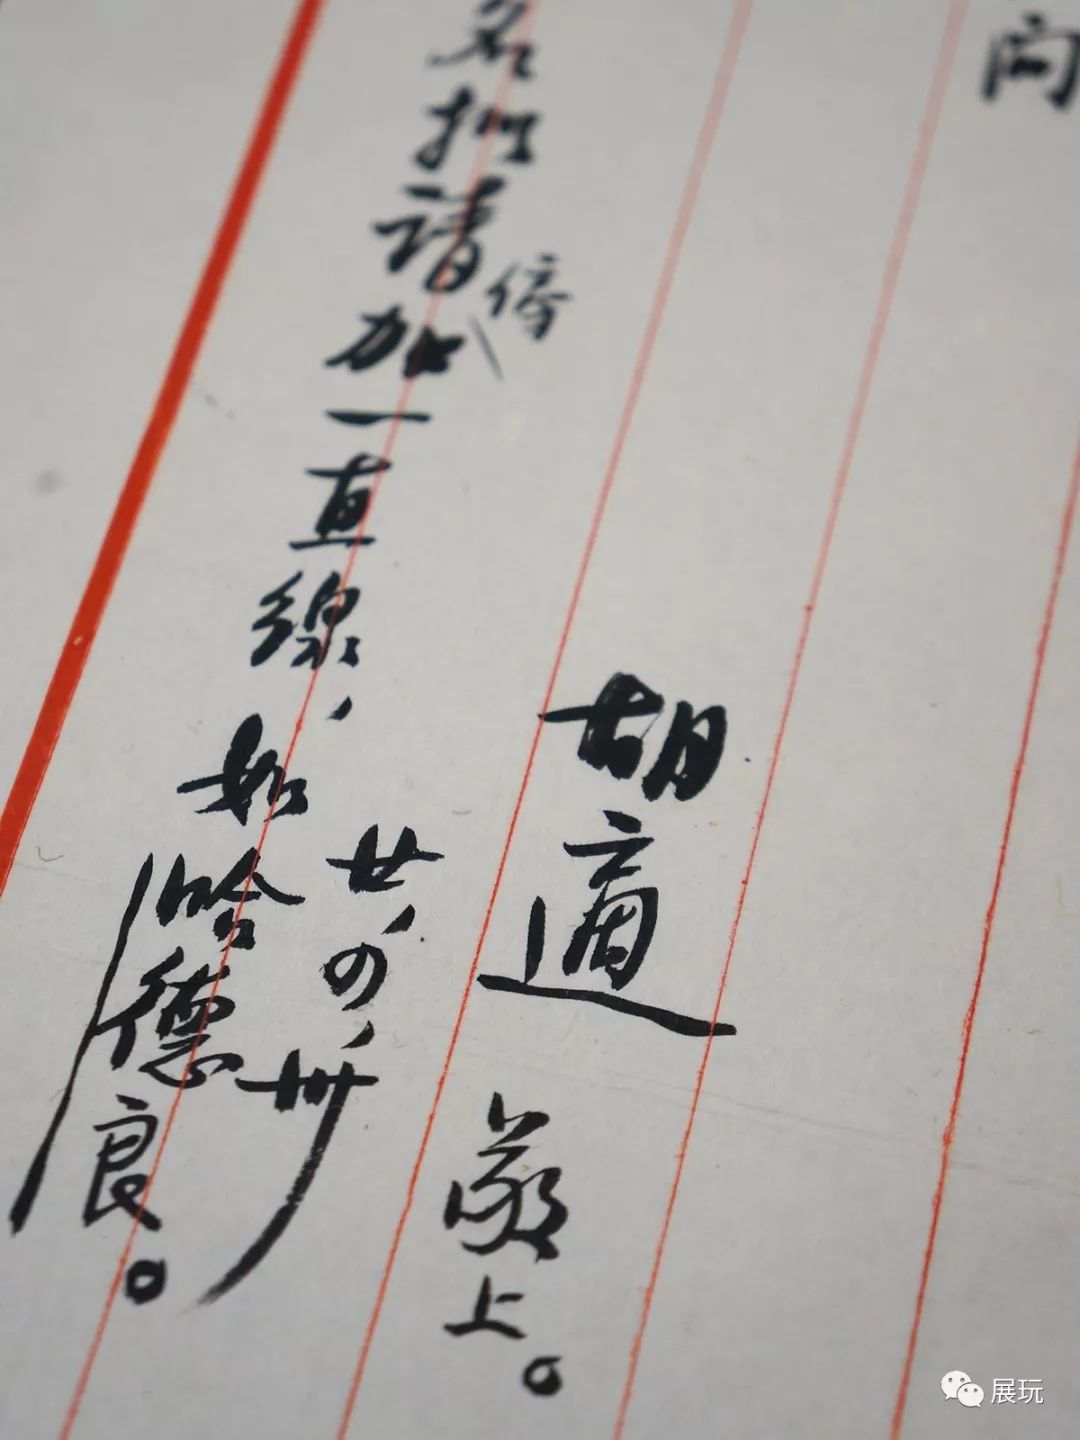 向
胡適 敬上。
廿，四，卅
名請傍加一直線，如哈德良。
展玩